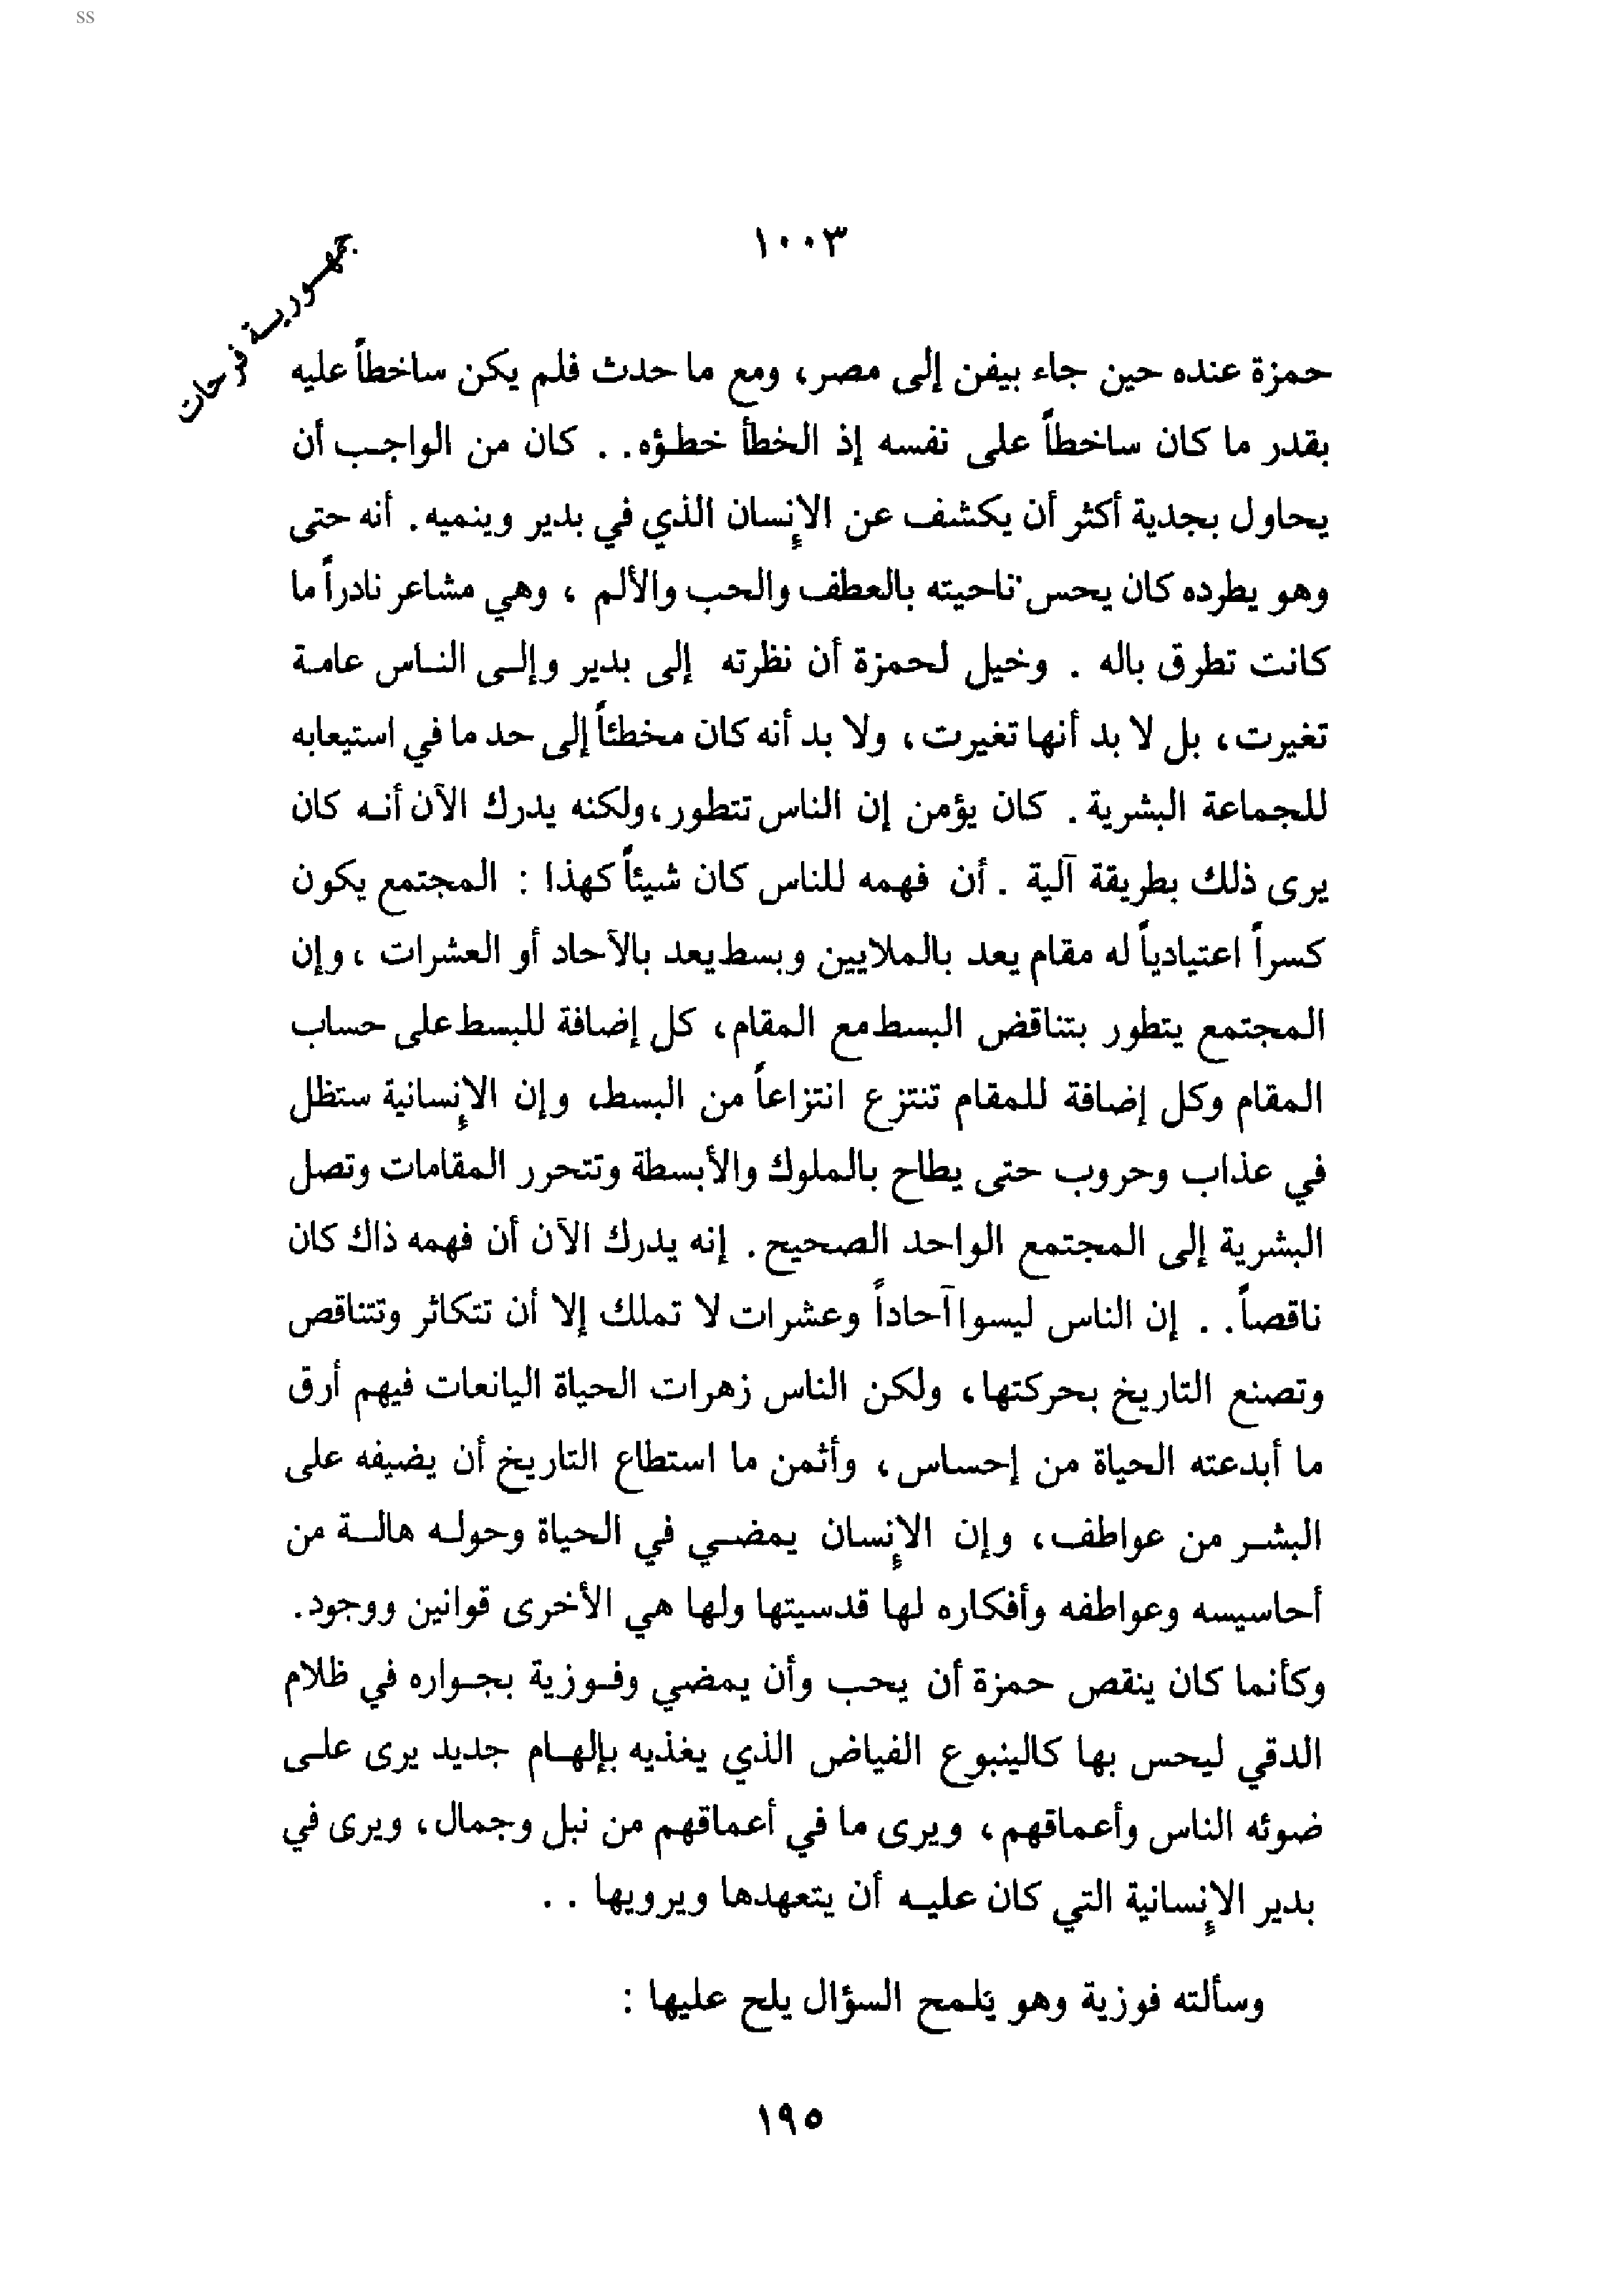 ss
١٠٠٣
جمهورية فرحات
حمزة عنده حين جاء بيفن إلى مصر، ومع ما حدث فلم يكن ساخطاً عليه
بقدر ما كان ساخطاً على نفسه إذ الخطأ خطؤه. . كان من الواجب أن
يحاول بجدية أكثر أن يكشف عن الإنسان الذي في بدير وينميه. أنه حتى
وهو يطرده كان يحس ناحيته بالعطف والحب والألم ، وهي مشاعر نادراً ما
كانت تطرق باله . وخيل لحمزة أن نظرته إلى بدير وإلى الناس عامة
تغيرت، بل لا بد أنها تغيرت، ولا بد أنه كان مخطئاً إلى حد ما في استيعابه
للجماعة البشرية. كان يؤمن إن الناس تتطور، ولكنه يدرك الآن أنه كان
يرى ذلك بطريقة آلية . أن فهمه للناس كان شيئاً كهذا : المجتمع يكون
كسراً اعتيادياً له مقام يعد بالملايين وبسط يعد بالآحاد أو العشرات ، وإن
المجتمع يتطور بتناقض البسط مع المقام، كل إضافة للبسط على حساب
المقام وكل إضافة للمقام تنتزع انتزاعاً من البسط، وإن الإنسانية ستظل
في عذاب وحروب حتى يطاح بالملوك والأبسطة وتتحرر المقامات وتصل
البشرية إلى المجتمع الواحد الصحيح. إنه يدرك الآن أن فهمه ذاك كان
ناقصاً. . إن الناس ليسوا آحاداً وعشرات لا تملك إلا أن تتكاثر وتتناقص
وتصنع التاريخ بحركتها، ولكن الناس زهرات الحياة اليانعات فيهم أرق
ما أبدعته الحياة من إحساس، وأثمن ما استطاع التاريخ أن يضيفه على
البشر من عواطف، وإن الإنسان يمضي في الحياة وحوله هالة من
أحاسيسه وعواطفه وأفكاره لها قدسيتها ولها هي الأخرى قوانين ووجود.
وكأنما كان ينقص حمزة أن يحب وأن يمضي وفوزية بجواره في ظلام
الدقي ليحس بها كالينبوع الفياض الذي يغذيه بإلهام جديد يرى على
ضوئه الناس وأعماقهم، ويرى ما في أعماقهم من نبل وجمال، ويرى في
بدير الإنسانية التي كان عليه أن يتعهدها ويرويها . .
وسألته فوزية وهو يلمح السؤال يلح عليها :
١٩٥